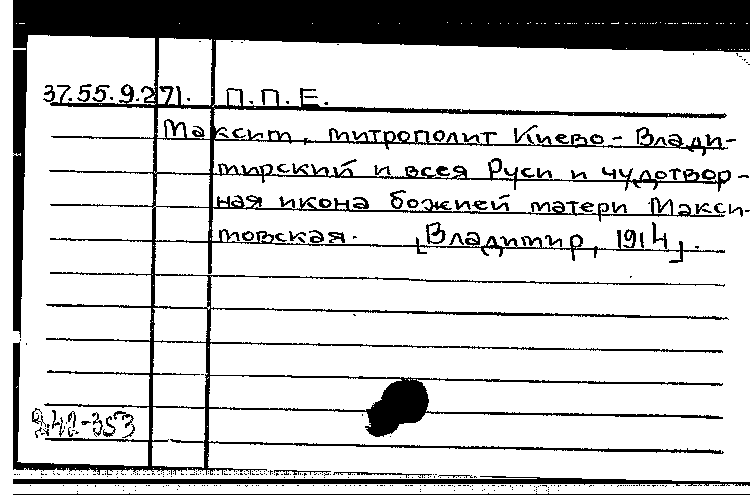 37.55.9.271. П.П.Е.
Максим, митрополит Киево-Влади-
мирский и всея Руси и чудотвор-
ная икона божией матери Макси-
мовская. [Владимир, 1914].